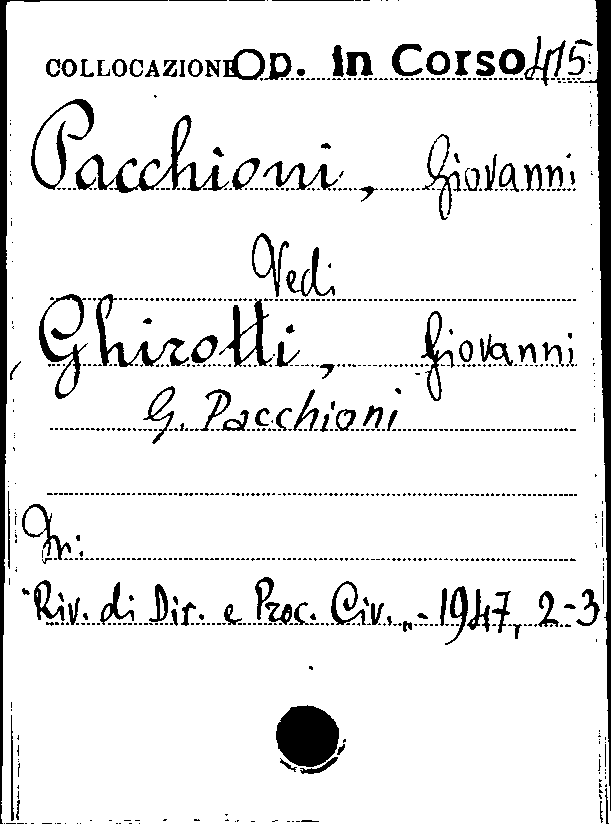 COLLOCAZIONE Op. in Corso 415
Pacchioni, Giovanni
Vedi
Ghirotti, Giovanni
G. Pacchioni
In:
"Riv. di Dir. e Proc. Civ.„ - 1947, 2-3